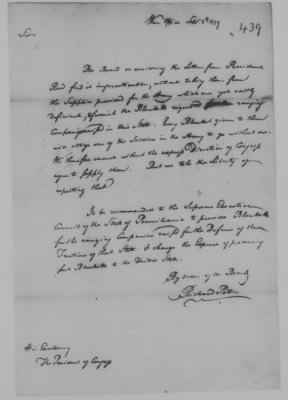 War Office Feby 2d 1779
439
Sir
The Board on receiving the Letter from President
Reed find it impracticable, without taking them from
the Supplies provided for the Army which are yet vastly
deficient, to furnish the Blankets required ranging
Companies in this State. Every Blanket given to them
one of the Soldiers in the Army to go without one.
We therefore cannot without the express Direction of Congress
agree to supply them. But we take the Liberty of
reporting that
It be recommended to the Supreme Executive
Council of the State of Pennsylvania to provide Blankets
for the ranging Companies for the Defence of the
Frontiers of that State & charge the Expence of procuring
such Blankets to the United States.
By order of the Board
Richard Peters
His Excellency
The President of Congress